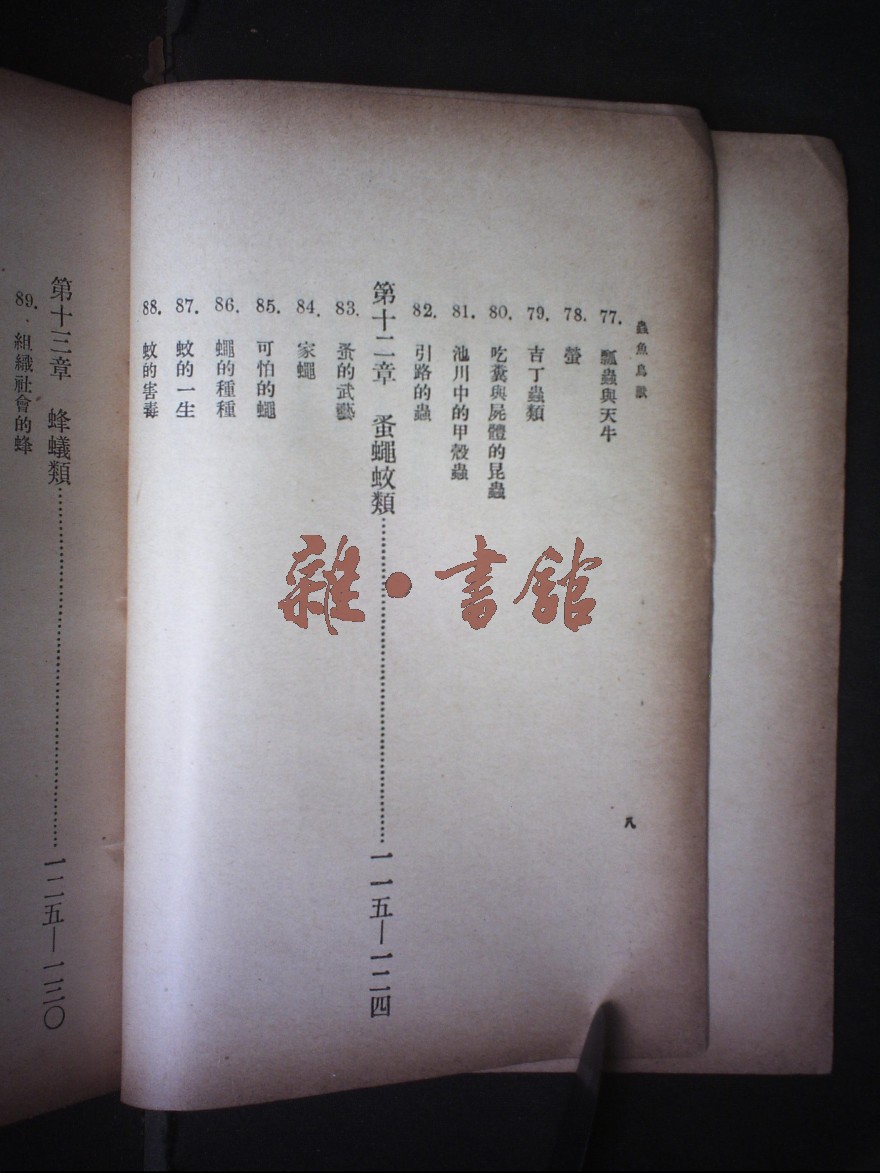 蟲魚鳥獸
77. 瓢蟲與天牛
78. 螢
79. 吉丁蟲類
80. 吃糞與屍體的昆蟲
81. 池川中的甲殼蟲
82. 引路的蟲
第十二章 蚤蠅蚊類……一一五—一二四
83. 蚤的武藝
84. 家蠅
85. 可怕的蠅
86. 蠅的種種
87. 蚊的一生
88. 蚊的害毒
八
第十三章 蜂蟻類……一二五—一三〇
89. 組織社會的蜂
雜·書館